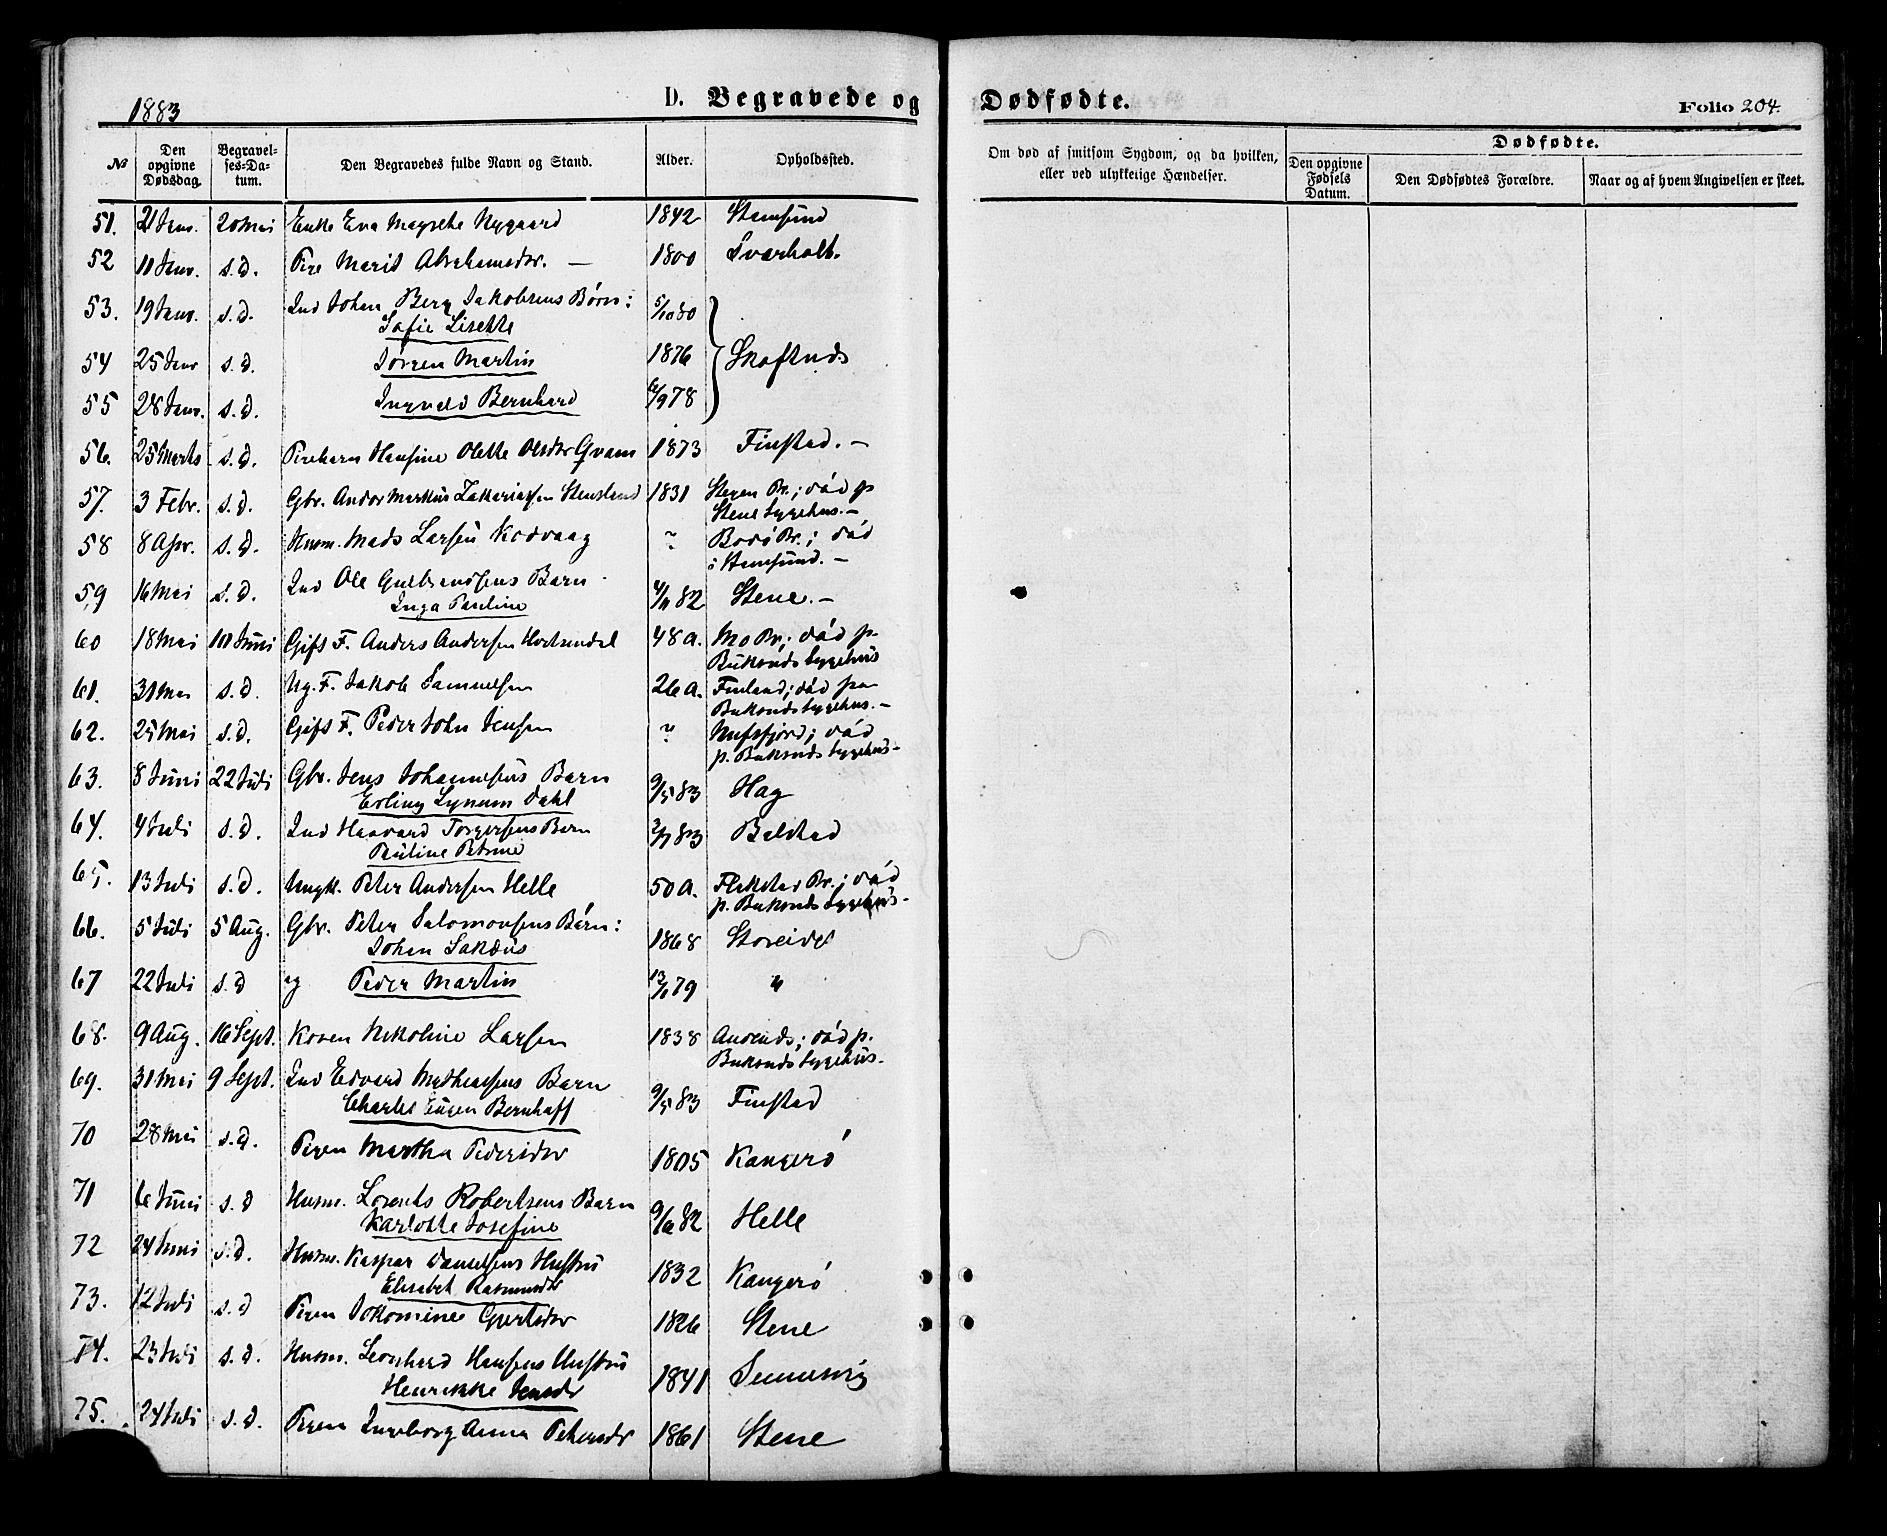 1883
D. Begravede og Dødfødte.
Folio 204.
№ Den opgivne Dødsdag. Begravelses-Datum. Den Begravedes fulde Navn og Stand. Alder. Opholdssted. Om død af smitsom Sygdom, og da hvilken, eller ved ulykkelige Hændelser. Dødfødte. Den opgivne Fødsels Datum. Den Dødfødtes Forældre. Naar og af hvem Angivelsen er skeet.
51. 21 Janr. 20 Mai Enke Eva Nygaard 1842 Stamsund
52 11 Janr. s.d. Marit Abrahamsdr. — 1800 Svarholt.
53. 19 Janr. s.d. Ind Johan Berg Jakobsens Børn: 5/10 80
Sofie Lisette
54 25 Janr s.d. Jørgen Martin 1876 Skaftnds
55 28 Janr. s.d. Ingvald Bernhard 6/9 78
56. 25 Marts s.d. Pigebarn Hansine Olette Olsdr Qvam 1873 Finstad. –
57. 3 Febr. s.d. Gbr. Andor Markus Zakariassen Stensland 1831 Stegen Pr.; død p
Stene Sygehus. –
58 8 Apr. s.d. Husm. Mads Larsen Kodvaag ? Bodø Pr.; død
i Stamsund. –
59 16 Mai s.d. Ind Ole Gulbrandsens Barn
Inga Pauline 4/11 82 Stene. –
60 18 Mai 10 Juni Gift F. Anders Andersen 48 a. Mo Pr.; død p.
Buksnds Sygehus
61. 31 Mai s.d. Ug. F. Jakob Samuelsen 26 a. Finland; død paa
Buksnds Sygehus. –
62. 25 Mai s.d. Gift F. Peder John Jensen ? Nufsfjord; død
p. Buksnds Sygehus –
63. 8 Juni 22 Juli Gbr. Jens Johannesens Barn
Erling Lynum Dahl 9/5 83 Hag
64. 4 Juli s.d. Ind Haavard Torgersens Barn
Pauline Petrine 2/7 83 Balstad
65. 13 Juli s.d. Ungk. Peter Andersen Helle 50 a. Flakstad Pr.; død
p. Buksnds Sygehus.
66. 5 Juli 5 Aug. Gbr. Peter Salomonsens Børn:
Johan Sakæus 1868 Storeidet
67 22 Juli s.d og Peder Martin 13/1 79 "
68. 9 Aug. 16 Sept. Konen Nikoline Larsen 1838 død p.
Buksnds Sygehus.
69. 31 Mai 9 Sept. Ind Edvard Mathiasens Barn
Charles Eugen Bernhoff 9/5 83 Finstad
70 28 Mai s.d. Pigen Martha Pedersdr 1805 Kangerø
71 6 Juni s.d Husm. Lorents Robertsens Barn
Karlotte Josefine 9/6 82 Helle
72 24 Juni s.d. Husm. Kaspar Danielsens Hustru
Elisabet Rasmusdr 1832 Kangerø
73. 12 Juli s.d Pigen Jokomine Gjertsdr 1826 Stene
74. 23 Juli s.d. Husm. Leonhard Hansens Hustru
Henrikke Jensdr 1841 Sennesvig
75. 24 Juli s.d. Pigen Ingeborg Anna Petersdr 1861 Stene